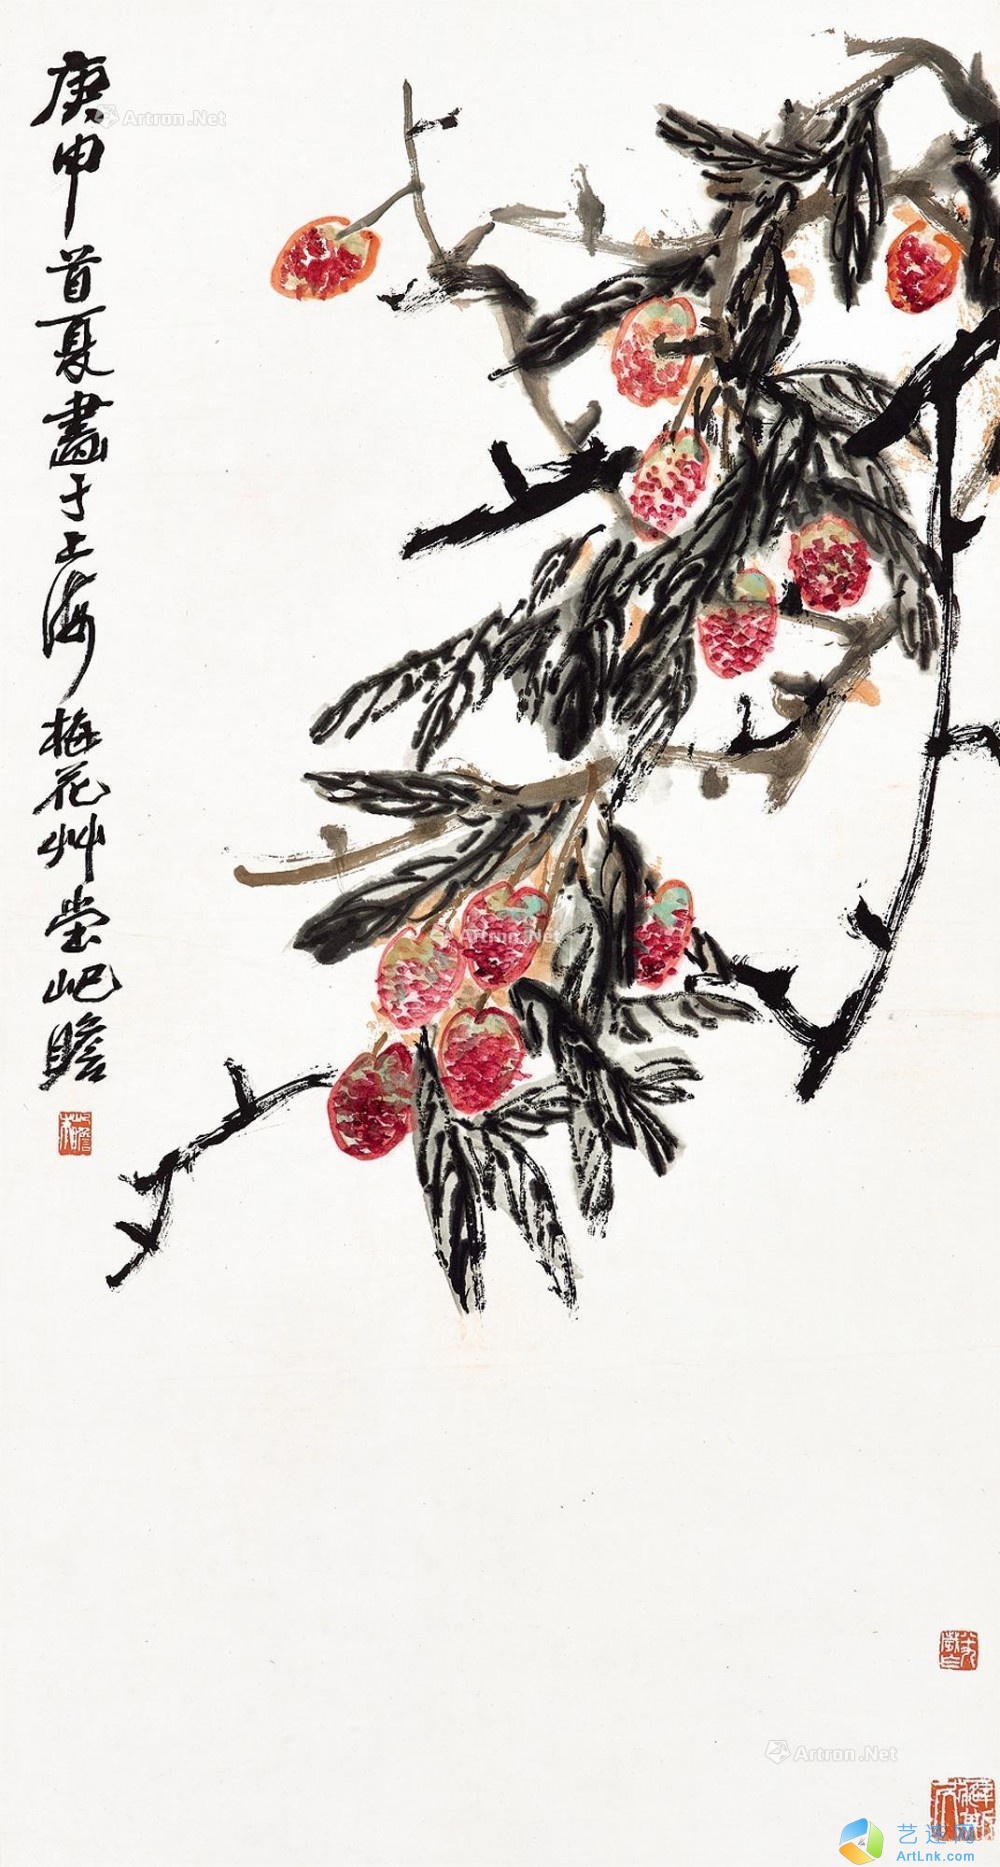 庚申首夏畫于上海梅花艸堂屺瞻
Artron.Net
Artron.Net
Artron.Net
艺连网
ArtLnk.com